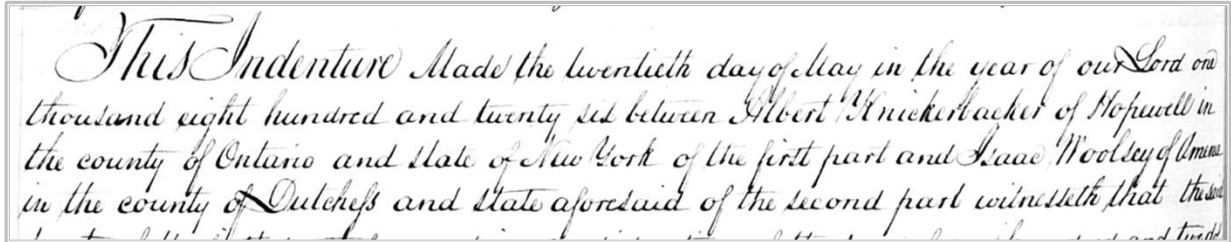 This Indenture Made the twentieth day of May in the year of our Lord one
thousand eight hundred and twenty six between Albert Knickerbacker of Hopewell in
the county of Ontario and state of New York of the first part and Isaac Woolsey of Amena
in the county of Dutchess and state aforesaid of the second part witnesseth that the said